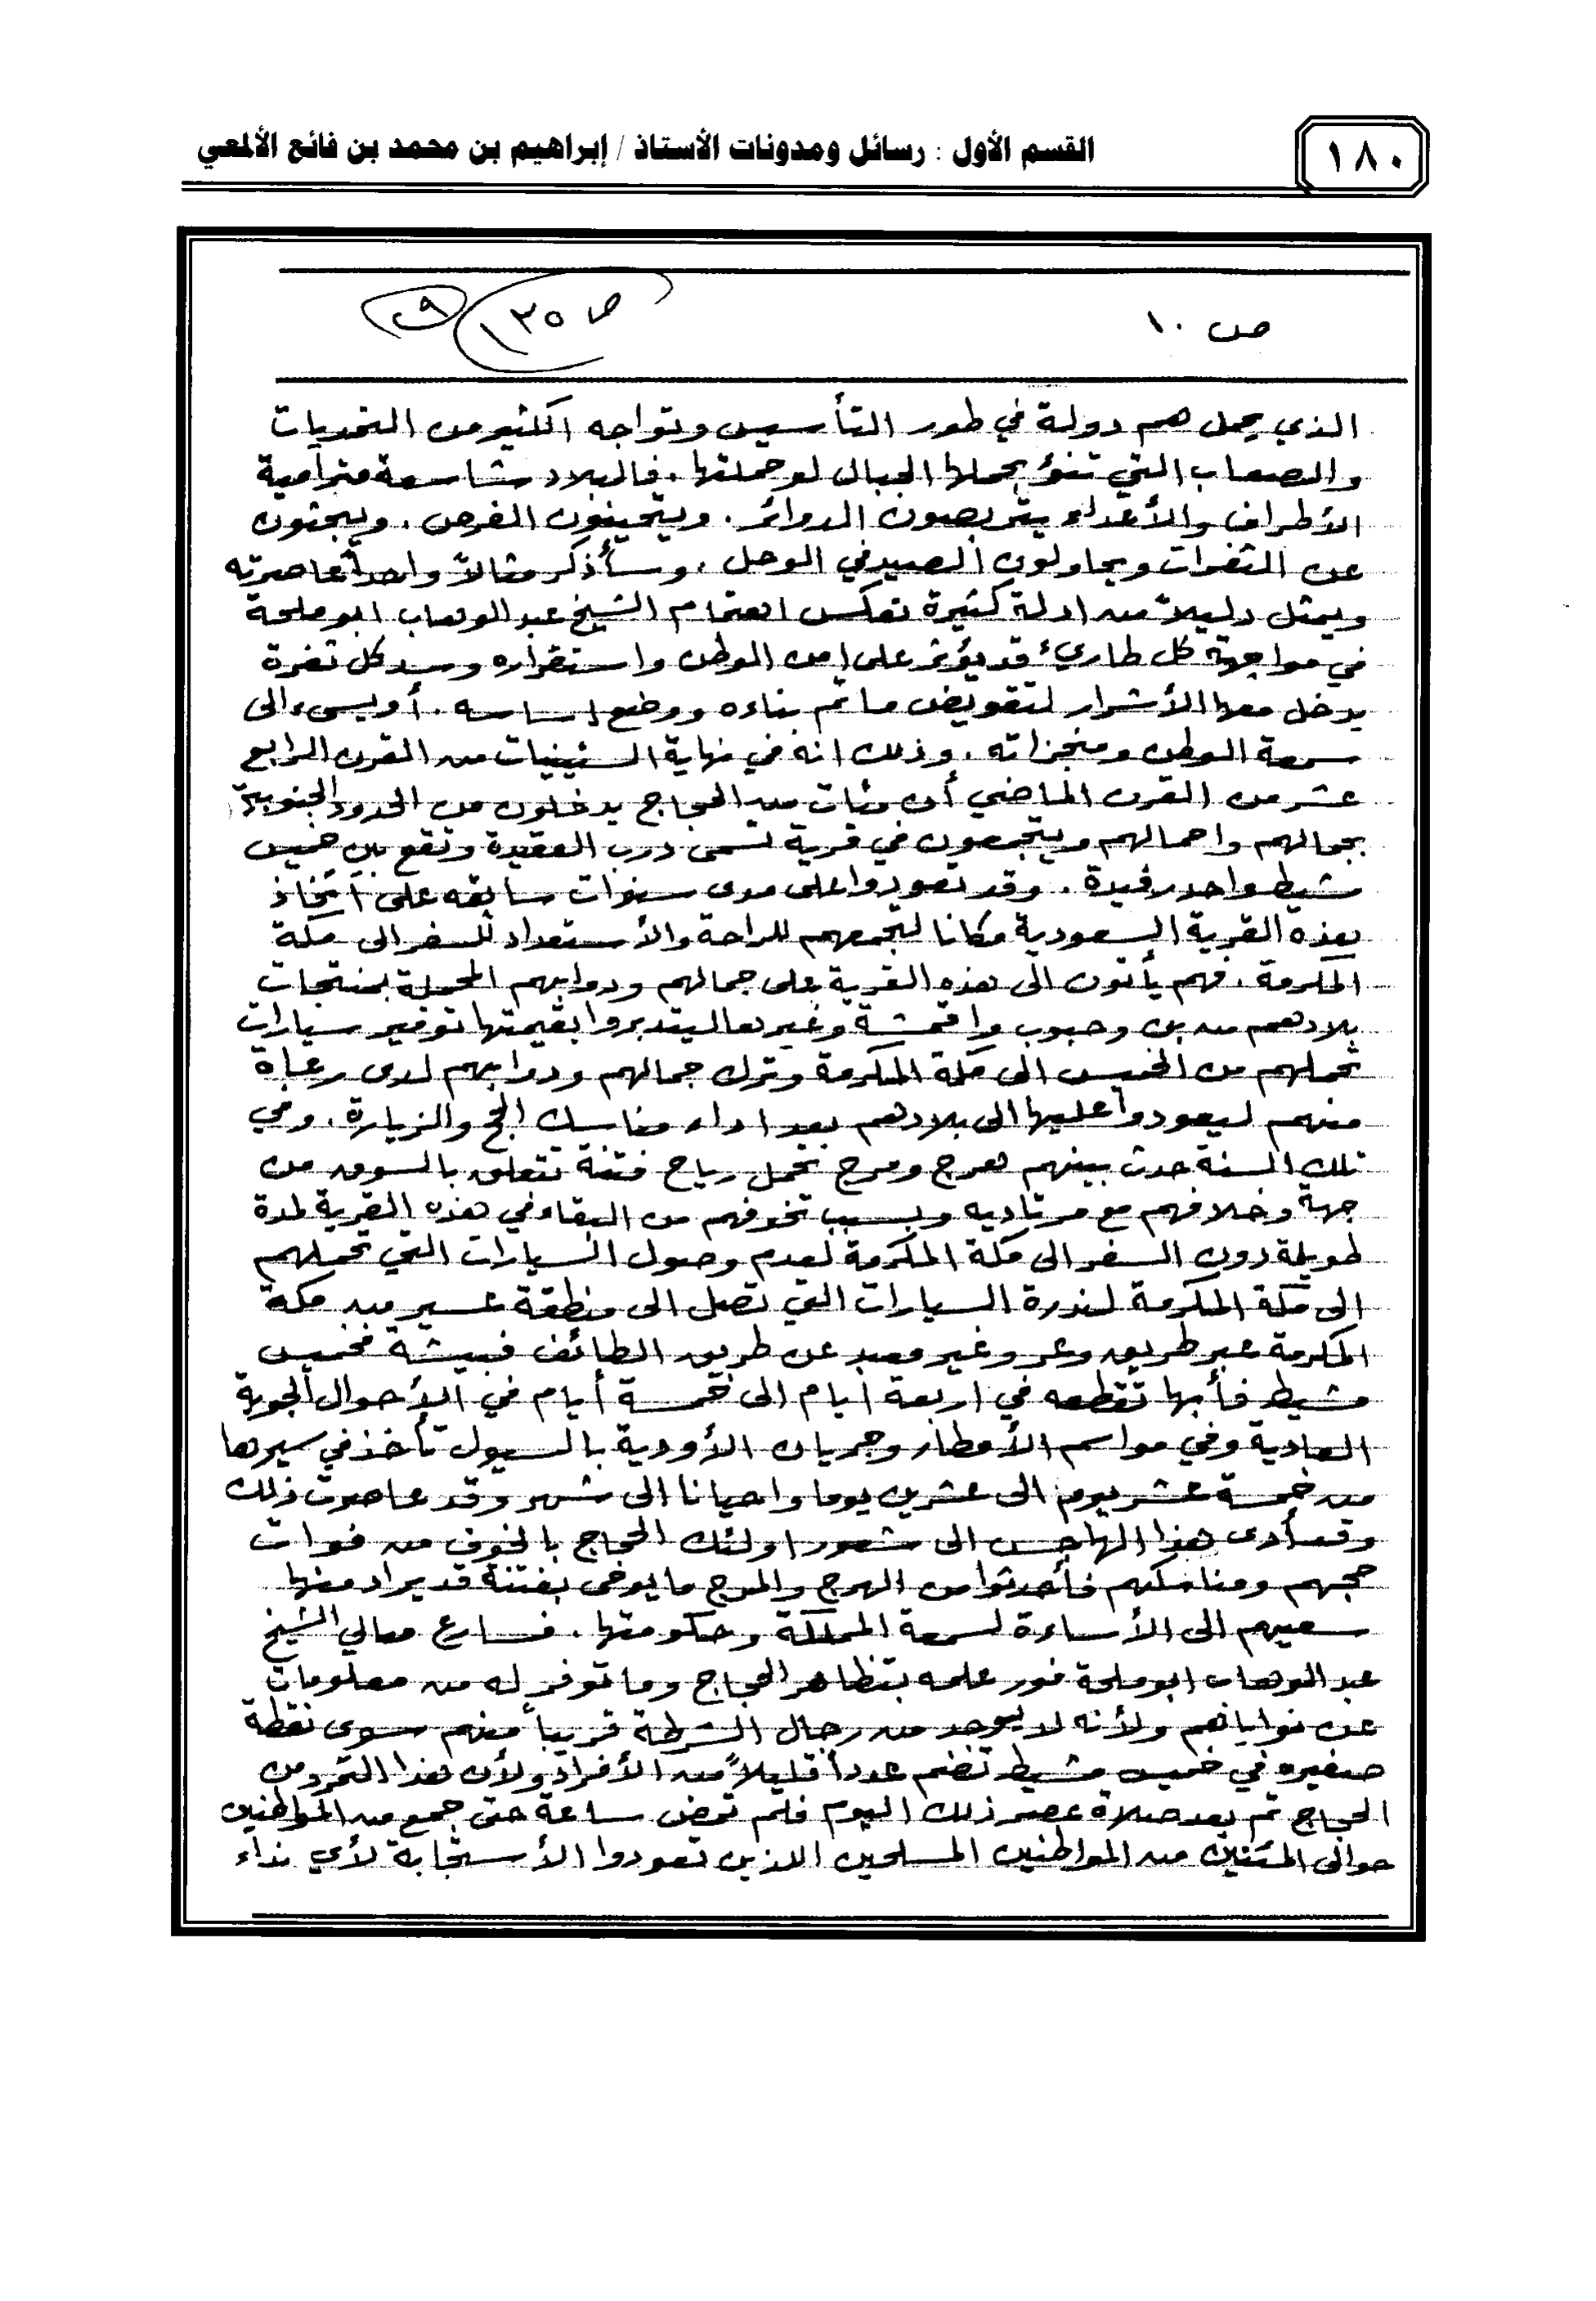 ١٨٠
القسم الأول : رسائل ومدونات الأستاذ / إبراهيم بن محمد بن فائع الألمعي
ص ١٠
ص ١٣٥
الذي يحمل هم دولة في طور التأسيس وتواجه الكثير من التحديات
والصعاب التي تنؤ بحملها الجبال لو حملتها . فالبلاد شاسعة مترامية
الأطراف والأعداء يتربصون الدوائر . ويتحينون الفرص . ويبحثون
عن الثغرات ويحاولون الصيد في الوحل . وسأذكر مثالاً واحداً عاصرته
ويمثل دليلاً من ادلة كثيرة تعكس اهتمام الشيخ عبد الوهاب ابو ملحة
في مواجهة كل طاريء قد يؤثر على امن الوطن واستقراره وسد كل ثغرة
يدخل معها الأشرار لتقويض ما تم بناءه ووضع اساسه . أو يسيء الى
سمعة الوطن ومنجزاته . وذلك انه في نهاية الستينيات من القرن الرابع
عشر من القرن الماضي أن مئات من الحجاج يدخلون من الحدود الجنوبية
بجمالهم واحمالهم ويتجمعون في قرية تسمى درب العقيدة وتقع بين خميس
مشيط واحد رفيدة . وقد تعودوا على مدى سنوات سابقه على اتخاذ
هذه القرية السعودية مكانا لتجمعهم للراحة والأستعداد للسفر الى مكة
المكرمة . فهم يأتون الى هذه القرية على جمالهم ودوابهم المحملة بمنتجات
بلادهم من بن وحبوب واقمشة وغيرها ليتدبروا بقيمتها توفير سيارات
تحملهم من الخميس الى مكة المكرمة وترك جمالهم ودوابهم لدى رعاة
منهم ليعودوا عليها الى بلادهم بعد اداء مناسك الحج والزيارة . وفي
تلك السنة حدث بينهم هرج ومرج تحمل رياح فتنة تتعلق بالسوق من
جهة وخلافهم مع مرتاديه وبسبب تخوفهم من البقاء في هذه القرية لمدة
طويلة دون السفر الى مكة المكرمة لعدم وصول السيارات التي تحملهم
الى مكة المكرمة لندرة السيارات التي تصل الى منطقة عسير من مكة
المكرمة عبر طريق وعر وغير معبد عن طريق الطائف فبيشة فخميس
مشيط فأبها تقطعه في اربعة ايام الى خمسة أيام في الأحوال الجوية
العادية وفي مواسم الأمطار وجريان الأودية بالسيول تأخذ في سيرها
من خمسة عشر يوم الى عشرين يوما واحيانا الى شهر وقد عاصرت ذلك
وقد أدى هذا الهاجس الى شعور اولئك الحجاج بالخوف من فوات
حجهم ومناسكهم فأحدثوا من الهرج والمرج ما يوحي بفتنة قد يراد منها
سعيهم الى الأساءة لسمعة المملكة وحكومتها . فسارع معالي الشيخ
عبد الوهاب ابو ملحة فور علمه بتظاهر الحجاج وما توفر له من معلومات
عن نواياهم ولأنه لا يوجد من رجال الشرطة قريباً منهم سوى نقطة
صغيره في خميس مشيط تضم عدداً قليلاً من الأفراد ولأن هذا التمرد من
الحجاج تم بعد صلاة عصر ذلك اليوم فلم تمض ساعة حتى جمع من المواطنين
حوالي المئتين من المواطنين المسلحين اللذين تعودوا الأستجابة لأي نداء